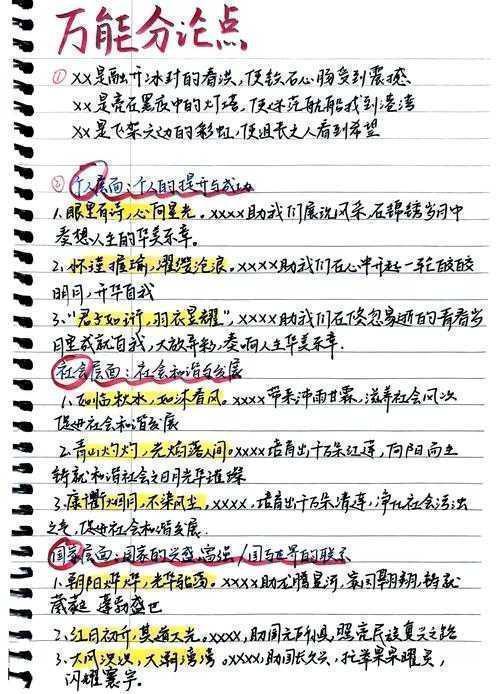 万能分论点
① XX是融开冰封的春洪，使铁石心肠受到震撼、
XX是亮在黑夜中的灯塔，使迷茫航船找到港湾
XX是飞架天边的彩虹，使沮丧之人看到希望
② 个人层面：个人的提升与成功
1.眼里有诗，心向星光。xxxx助我们展说风采，在锦绣岁月中
奏想人生的华美乐章。
2.怀瑾握瑜，耀燃沧浪。xxxx助我们在心中升起一轮皎皎
明月，升华自我
3."君子如珩，羽衣昱耀"，xxxx助我们在倏忽易逝的青春岁
月里成就自我，大放异彩，奏响人生华美乐章.
社会层面：社会和谐与发展
1.如临秋水，如沐春风。xxxx带来沛雨甘霖，滋养社会风次
促进社会和谐发展
2.青山灼灼，光焰落人间。xxxx培育出千朵红莲，向阳而生
铸就和谐社会之日月光华璀璨
3.康衢烟月，不染风尘，xxxx，培育出千朵清莲，净化社会污浊
之气，促进社会和谐发展.
国家层面：国家的兴盛富强/国与世界的联系
1.朝阳烨烨，光华骀荡。xxxx助龙腾星河，家国翱翔，铸就
葳蕤 蓬勃盛世
2.红日初升，其道大光。xxxx，助国无所惧，照亮民族复兴之路
3.大风泱泱，大潮滂滂。xxxx，助国长久兴，
闪耀寰宇。